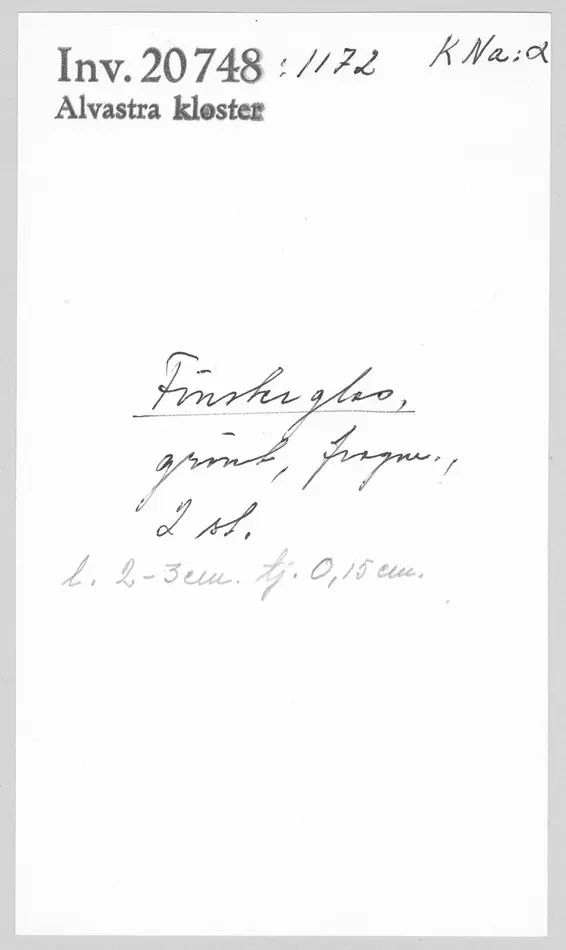 Inv. 20748 :1172 K Na:2
Alvastra kloster
Fönsterglas,
grönt, fragm.,
2 st.
l. 2-3cm. tj. 0,15cm.